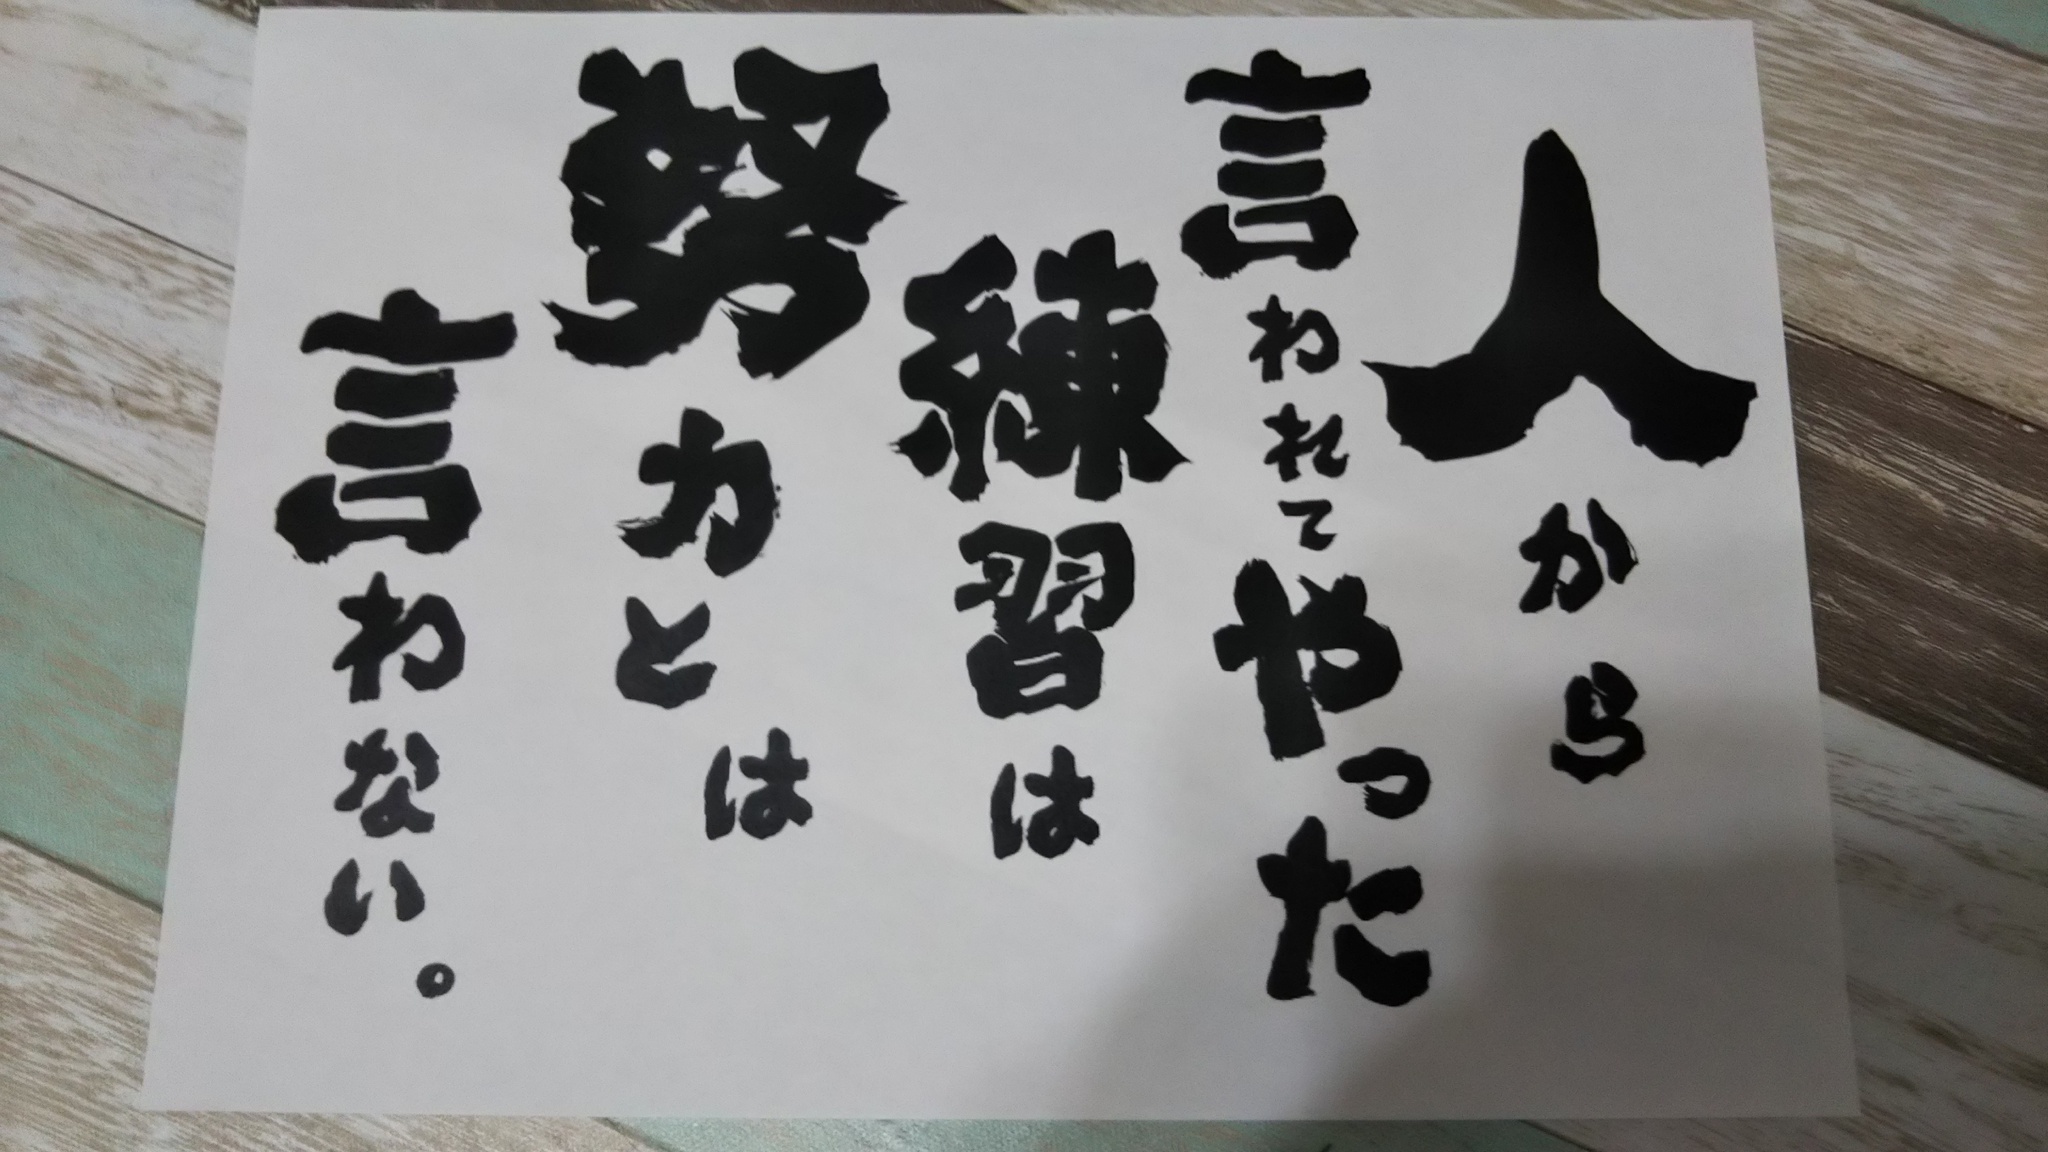 人から
言われてやった
練習は
努力とは
言わない。